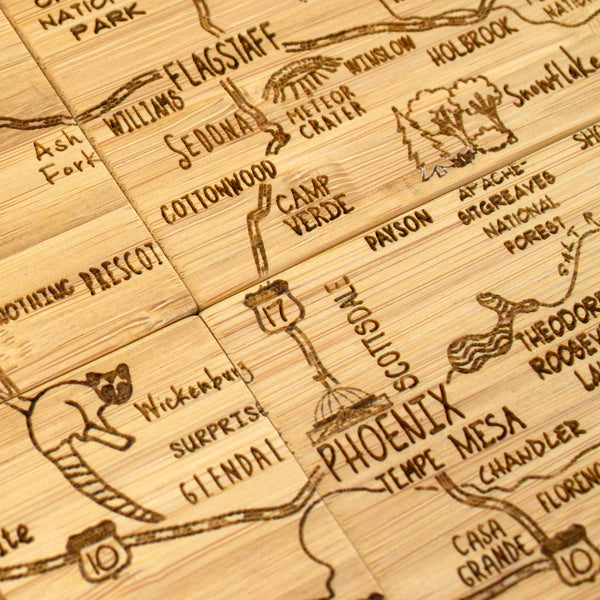 NATIONAL
PARK
FLAGSTAFF
WINSLOW
HOLBROOK
WILLIAMS
Ash
Fork
SEDONA
METEOR
CRATER
Snowflake
COTTONWOOD
CAMP
VERDE
PAYSON
APACHE-
SITGREAVES
NATIONAL
FOREST
SALT R
NOTHING
PRESCOT
17
SCOTTSDALE
THEODORE
ROOSEV
LA
Wickenburg
SURPRISE
GLENDAL
PHOENIX
TEMPE
MESA
CHANDLER
FLORENC
CASA
GRANDE
10
10